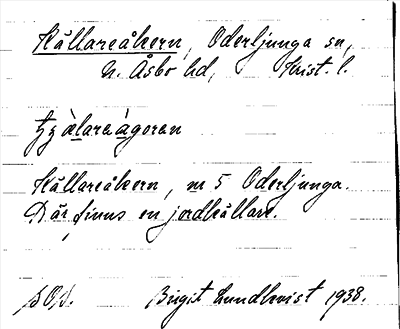 Källareåkern, Oderljunga sn,
N. Åsbo hd, Krist. l.
tyɀàlaraágoran
Källareåkern, nr 5 Oderljunga.
Där finns en jordkällare.
SOV. Birgit Lundkvist 1938.